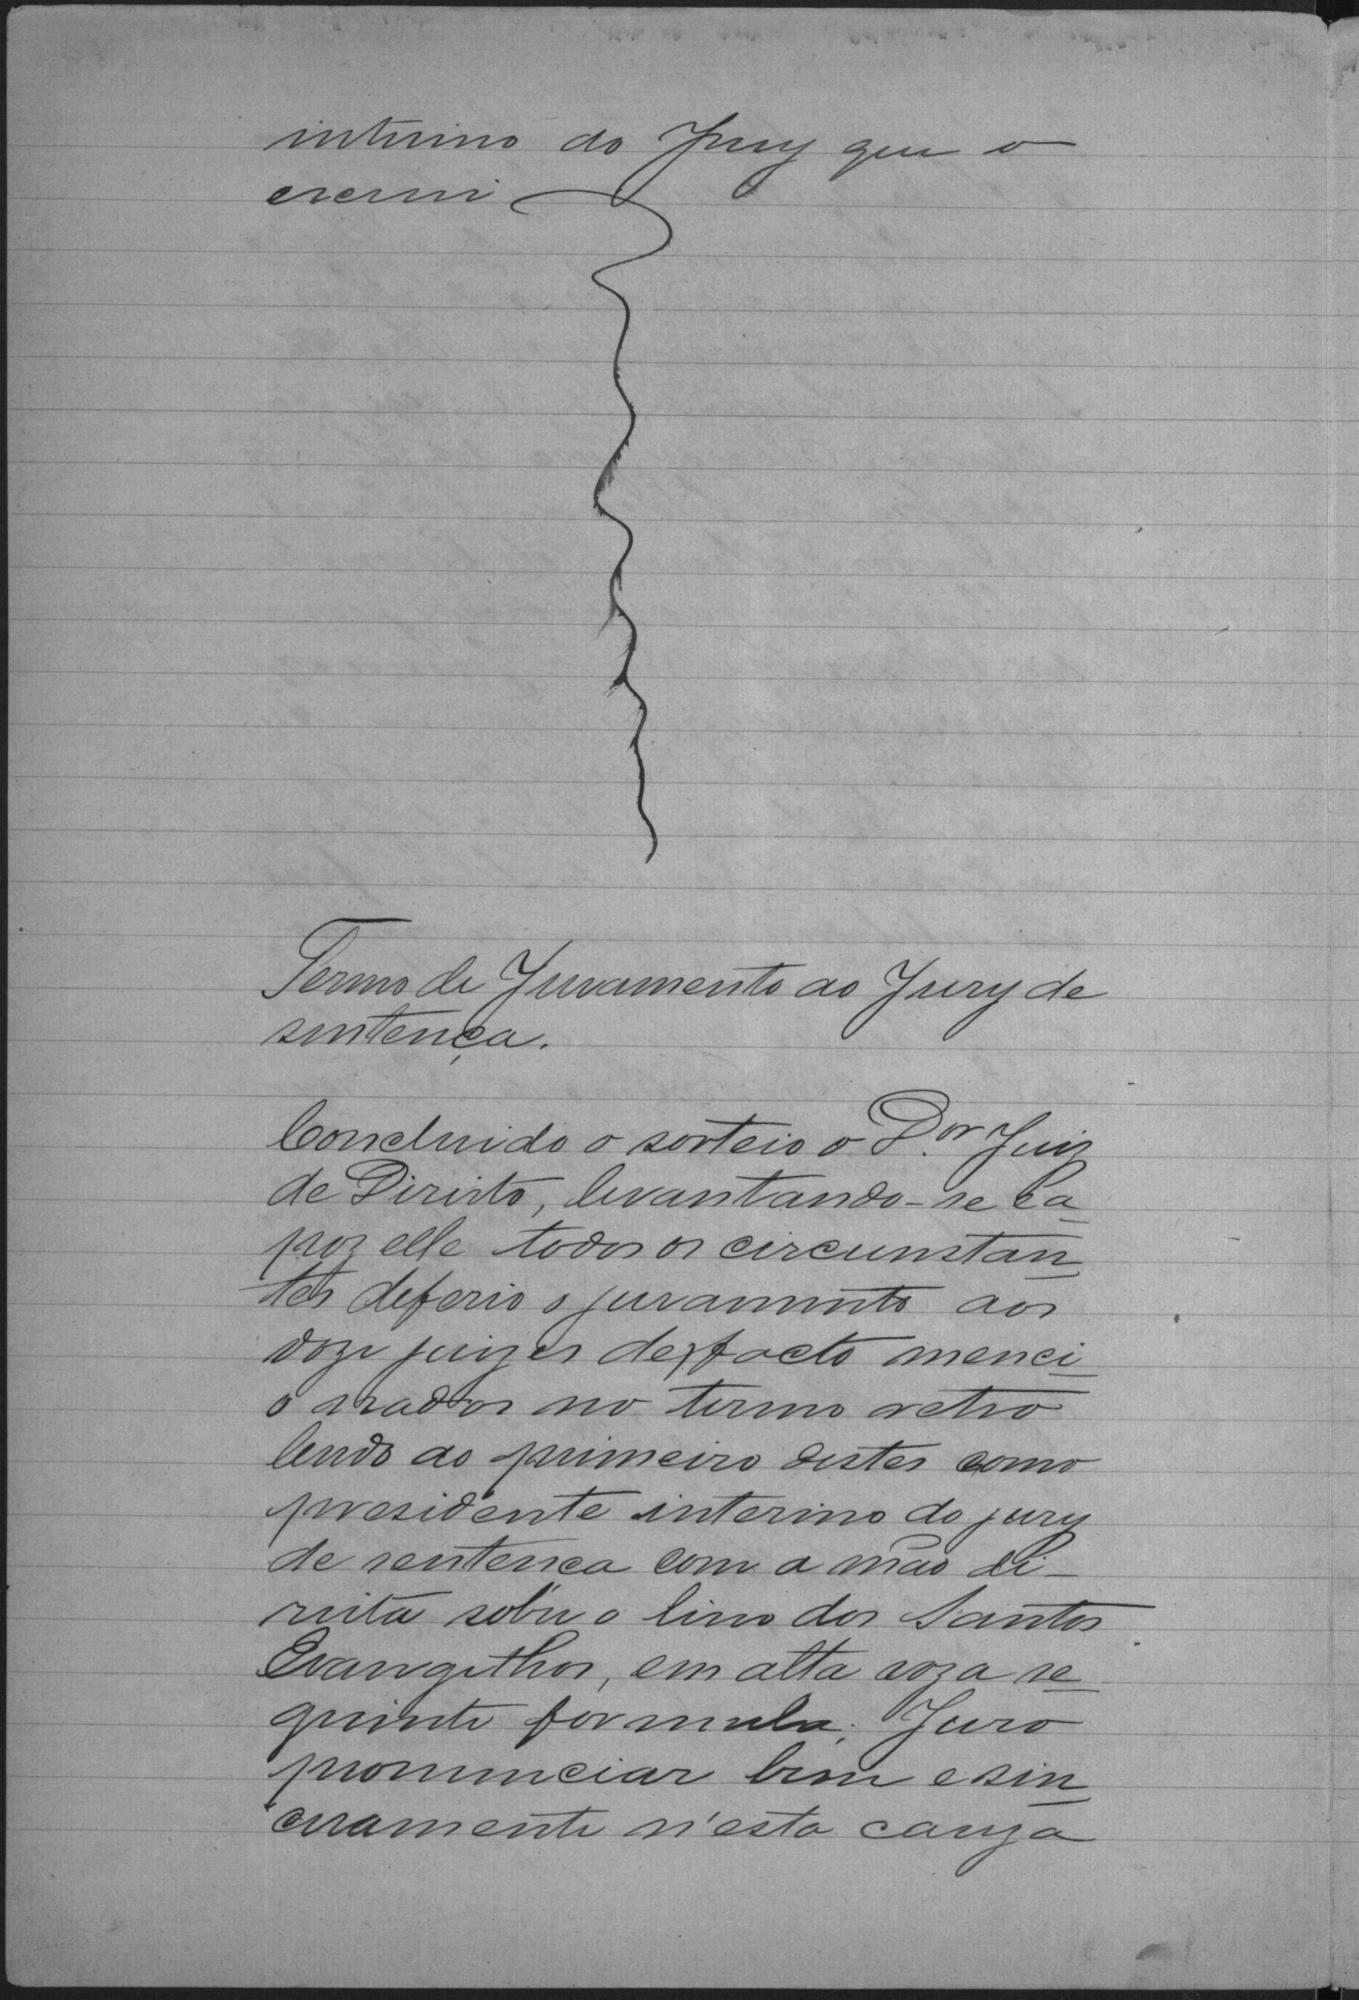 interino do Jury que o
escrevi
Termo de Juramento ao Jury de
sentença.
Concluido o sorteio o D.or Juiz
de Direito, levantando-se e a
poz elle todos os circunstan
tes deferio o juramento aos
doze juizes de facto menci
onados no termo retro
lendo ao primeiro destes como
presidente interino do jury
de sentença com a mão di-
reita sobre o livro dos Santos
Evangelhos, em alta voz a se
guinte formula: Juro
pronunciar bem e sin
ceramente n'esta cauza